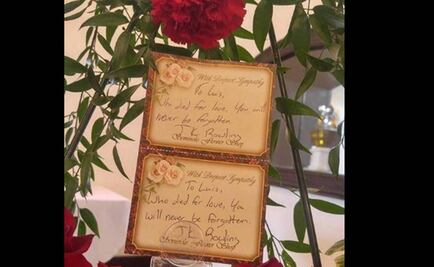 With Deepest Sympathy
To Luis,
Who died for love, You will
never be forgotten.
J K Rowling
Seminole Flower Shop
With Deepest Sympathy
To Luis,
Who died for love, You
will never be forgotten.
JK Rowling
Seminole Flower Shop